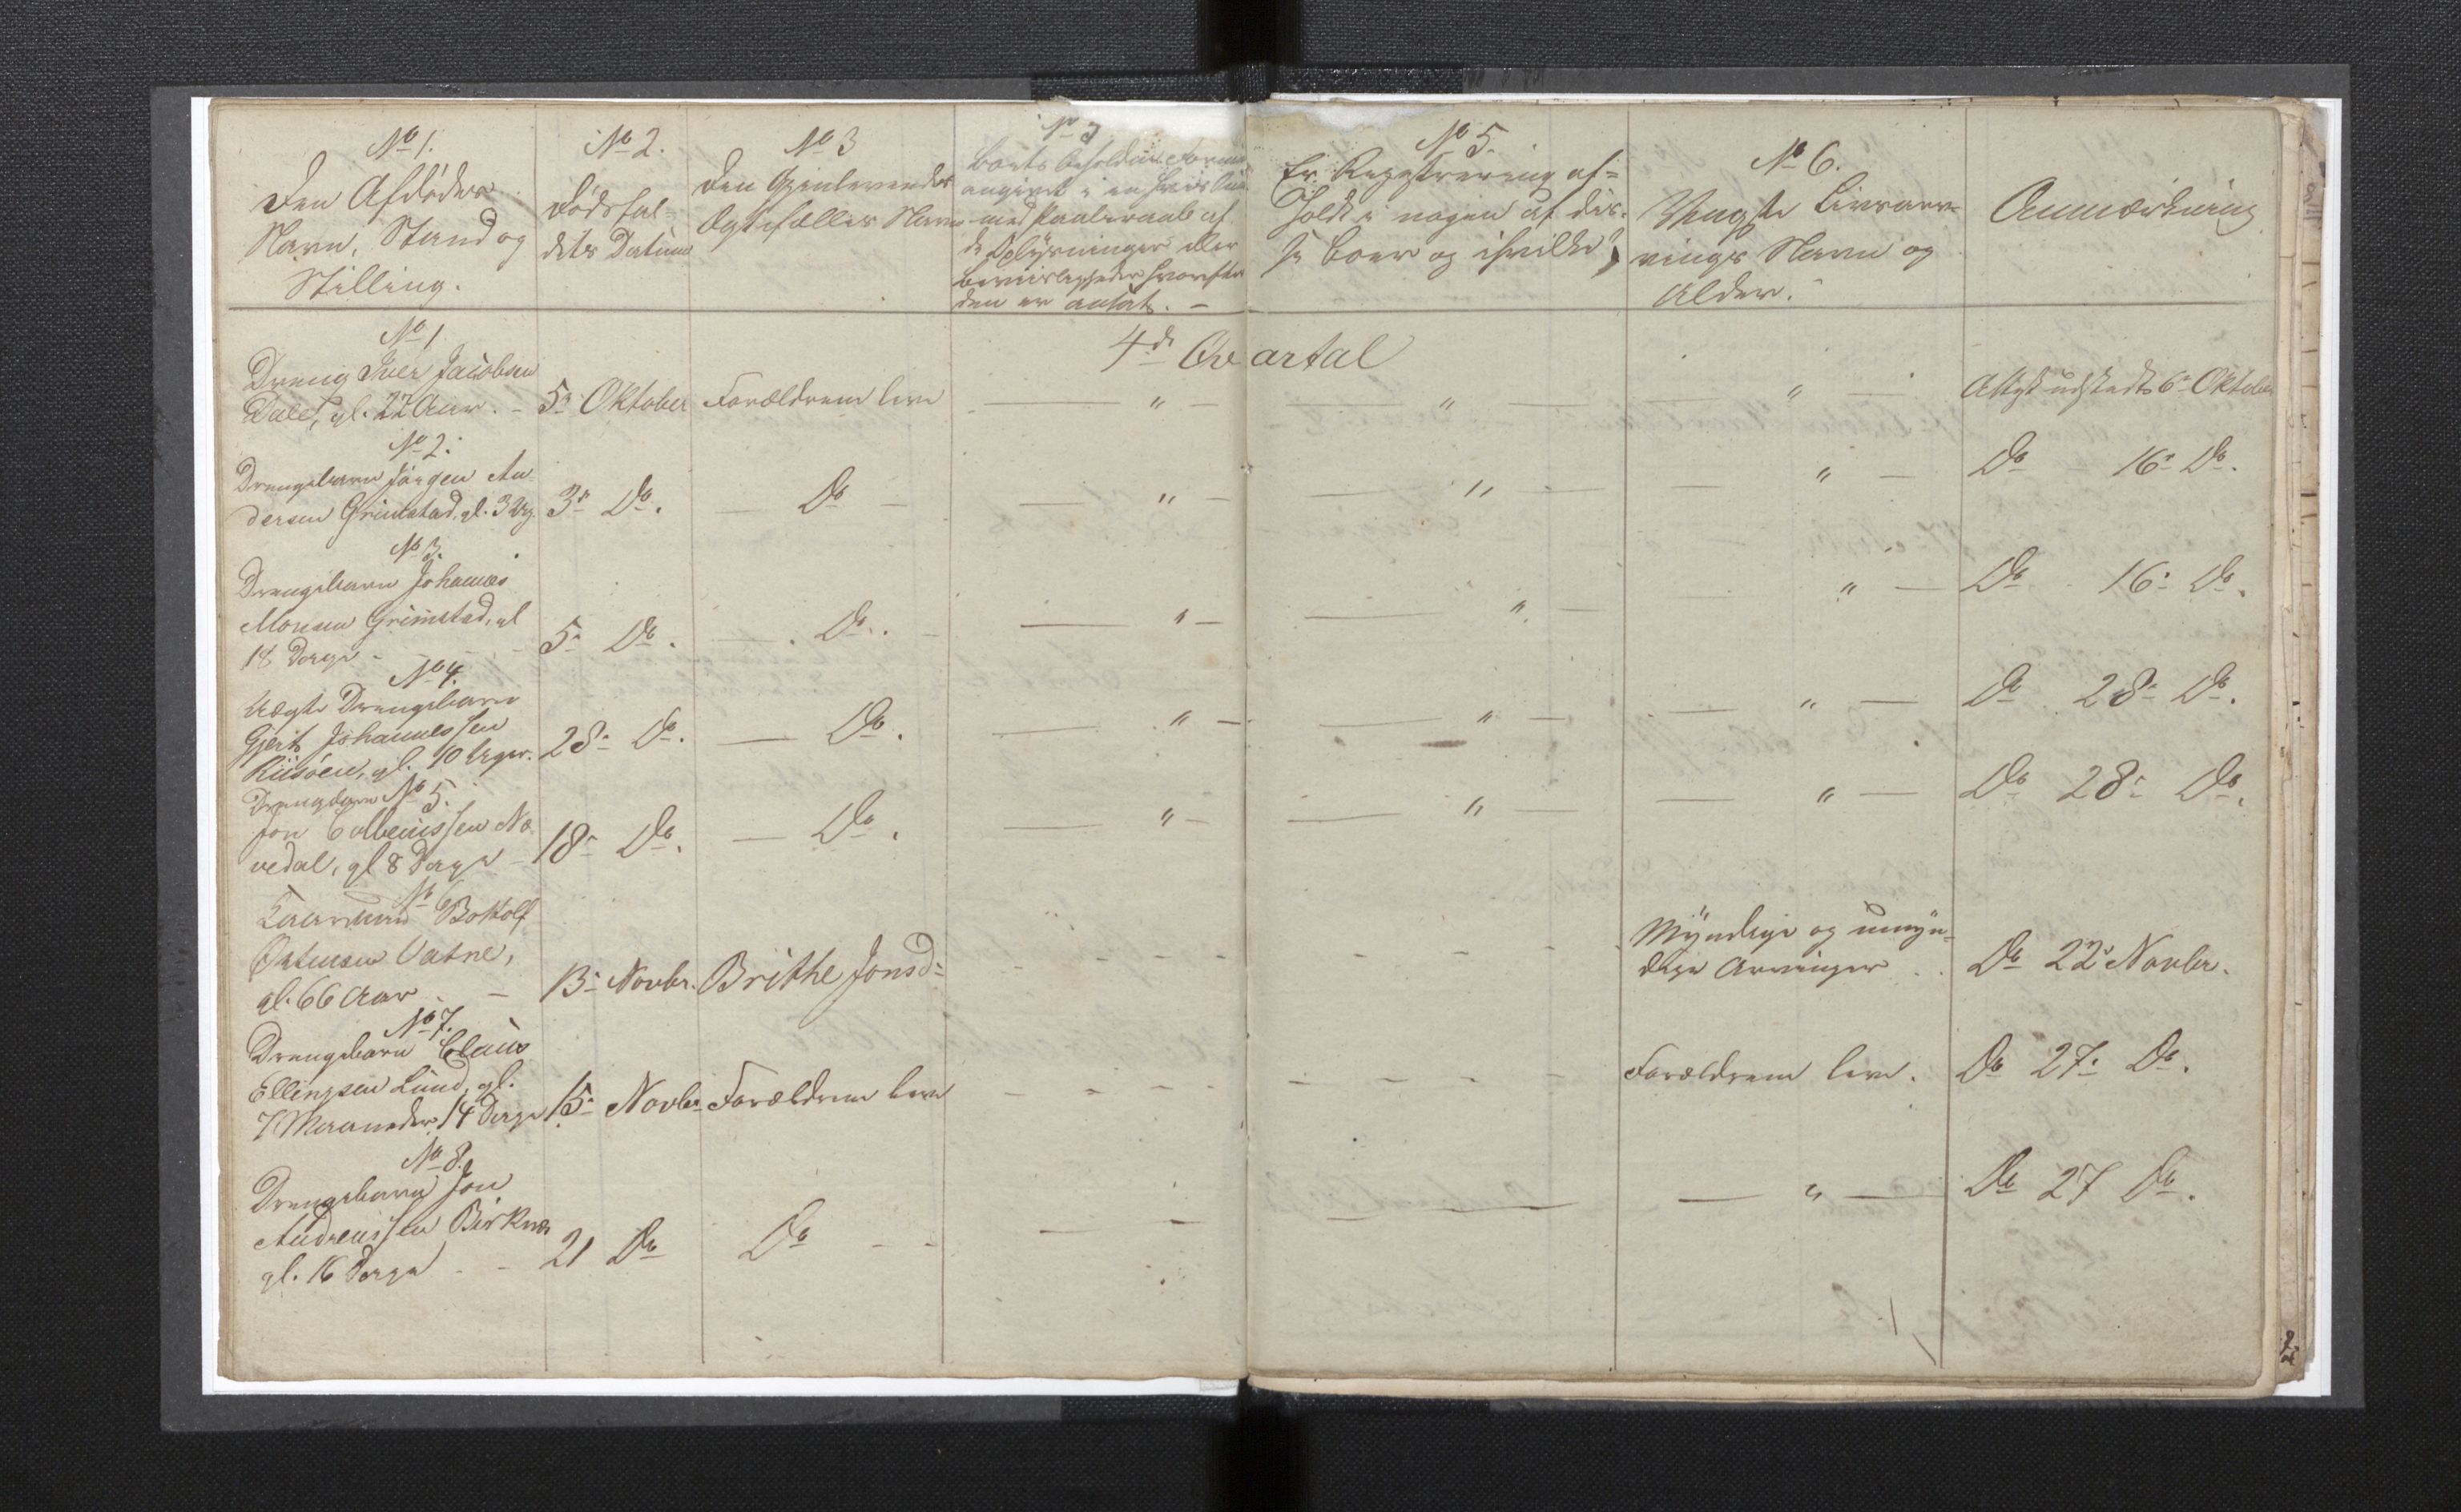 No 1.
Den Afdödes
Navn, Stand og
Stilling.
No 2.
Dödsfal-
dets Datum
No 3
Den Gjenlevendes
Ægtefælles Navn
Boets Beholdne
angivet i
med Paaberaab af
de Oplysninger eller
Beviisligheder hvorefter
den er ansat. -
No 5.
Er Registrering af-
holdt i nogen af dis-
se Boer og i hvilke?
No 6.
Umyndige
vinges Navn og
Alder.
Anmærkning
4de Qvartal
No 1
Dreng Iver Jacobsen
Dale, gl. 22 Aar. - 5te Oktober Forældrene leve — " — — " — — " — Attest udstædt 6te Oktober
No 2.
Drengebarn Jörgen An
dersen Grimstad, gl. 3 Ug. 3de Do. — Do — — " — — " — — " — Do - 16te Do.
No 3.
Drengebarn Johannes
Monsen Grimstad, gl
18 Dage - - 5te Do. — Do. — " — — " — — " — Do 16te Do.
No 4.
Uægte Drengebarn
Gjert Johannessen
Riisöen, gl. 10 Uger. 28de Do. — Do. — " — — " — — " — Do 28de Do.
Drengebarn No 5.
Jon Colbeinssen Næ
vedal, gl 8 Dage - 18de Do. — Do. — " — — " — — " — Do 28de Do.
No 6
Kaarmand Bottolf
Vatne,
gl. 66 Aar - 13de Novbr. Brithe Jonsd: Myndige og umyn-
dige Arvinger . . Do 22de Novbr.
No 7.
Drengebarn Claus
Ellingsen Lund, gl.
7 Maaneder 14 Dage 15de Novbr Forældrene leve - - - - Forældrene leve. Do 27de Do.
No 8.
Drengebarn Jon
Andreassen Birknes
gl. 16 Dage - - 21 Do Do - - — - — — " — Do 27 Do.